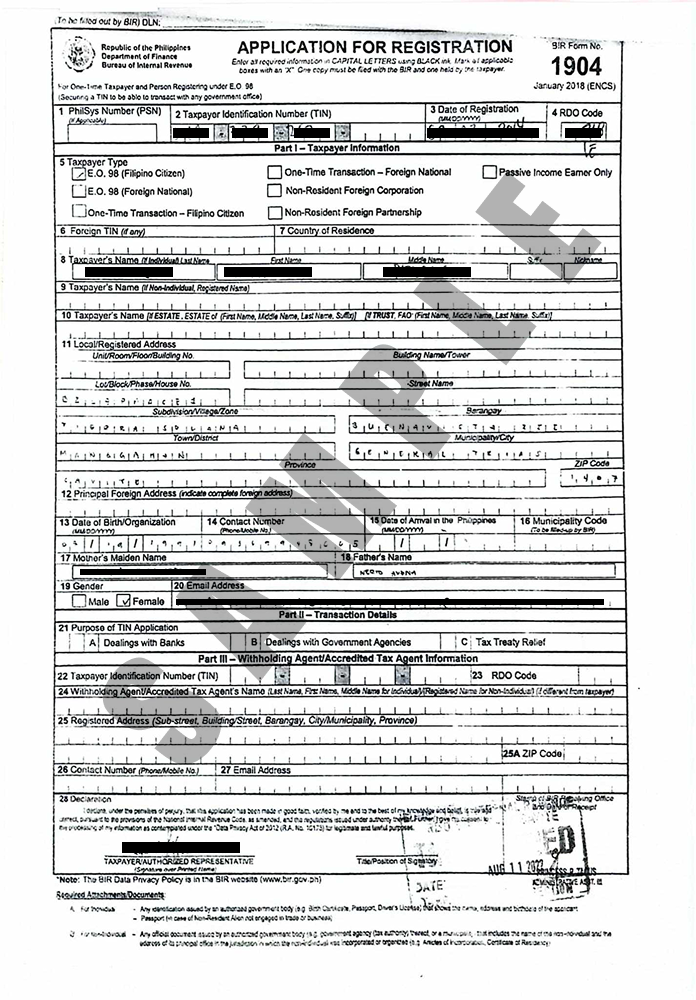 (To be filled out by BIR) DLN:
Republic of the Philippines
Department of Finance
Bureau of Internal Revenue
APPLICATION FOR REGISTRATION
Enter all required information in CAPITAL LETTERS using BLACK ink. Mark all applicable
boxes with an "X". One copy must be filed with the BIR and one held by the taxpayer.
BIR Form No.
1904
January 2018 (ENCS)
For One-Time Taxpayer and Person Registering under E.O. 98
(Securing a TIN to be able to transact with any government office)
1 PhilSys Number (PSN)
(If Applicable)
2 Taxpayer Identification Number (TIN)
3 Date of Registration
(MM/DD/YYYY)
4 RDO Code
Part I – Taxpayer Information
5 Taxpayer Type
E.O. 98 (Filipino Citizen)
One-Time Transaction – Foreign National
Passive Income Earner Only
E.O. 98 (Foreign National)
Non-Resident Foreign Corporation
One-Time Transaction – Filipino Citizen
Non-Resident Foreign Partnership
6 Foreign TIN (if any)
7 Country of Residence
8 Taxpayer's Name (If Individual) Last Name
First Name
Middle Name
Suffix
Nickname
9 Taxpayer's Name (If Non-Individual, Registered Name)
10 Taxpayer's Name [If ESTATE, ESTATE of (First Name, Middle Name, Last Name, Suffix)] [If TRUST, FAO (First Name, Middle Name, Last Name, Suffix)]
11 Local/Registered Address
Unit/Room/Floor/Building No.
Building Name/Tower
Lot/Block/Phase/House No.
Street Name
Subdivision/Village/Zone
Barangay
Town/District
Municipality/City
MANGGAHAN
GENERAL TRIAS
Province
ZIP Code
CAVITE
12 Principal Foreign Address (indicate complete foreign address)
13 Date of Birth/Organization
(MM/DD/YYYY)
14 Contact Number
(Phone/Mobile No.)
15 Date of Arrival in the Philippines
(MM/DD/YYYY)
16 Municipality Code
(To be filled-up by BIR)
17 Mother's Maiden Name
18 Father's Name
19 Gender
20 Email Address
Male
Female
Part II – Transaction Details
21 Purpose of TIN Application
A Dealings with Banks
B Dealings with Government Agencies
C Tax Treaty Relief
Part III – Withholding Agent/Accredited Tax Agent Information
22 Taxpayer Identification Number (TIN)
23 RDO Code
24 Withholding Agent/Accredited Tax Agent's Name (Last Name, First Name, Middle Name for Individual)/(Registered Name for Non-Individual) (if different from taxpayer)
25 Registered Address (Sub-street, Building/Street, Barangay, City/Municipality, Province)
25A ZIP Code
26 Contact Number (Phone/Mobile No.)
27 Email Address
28 Declaration
Stamp of BIR Receiving Office
and Date of Receipt
I declare, under the penalties of perjury, that this application has been made in good faith, verified by me and to the best of my knowledge and belief, is true and
correct, pursuant to the provisions of the National Internal Revenue Code, as amended, and the regulations issued under authority thereof. Further, I give my consent to
the processing of my information as contemplated under the *Data Privacy Act of 2012 (R.A. No. 10173) for legitimate and lawful purposes.
AUG 11 2022
TAXPAYER/AUTHORIZED REPRESENTATIVE
(Signature over Printed Name)
Title/Position of Signatory
DATE
*Note: The BIR Data Privacy Policy is in the BIR website (www.bir.gov.ph)
Required Attachments/Documents:
A. For Individual – Any identification issued by an authorized government body (e.g. Birth Certificate, Passport, Driver's License) that shows the name, address and birthdate of the applicant
– Passport (in case of Non-Resident Alien not engaged in trade or business)
– Any official document issued by an authorized government body (e.g. government agency (tax authority) thereof, or a municipality) that includes the name of the non-individual and the
address of its principal office in the jurisdiction in which the non-individual was incorporated or organized (e.g. Articles of Incorporation, Certificate of Residency)
SAMPLE